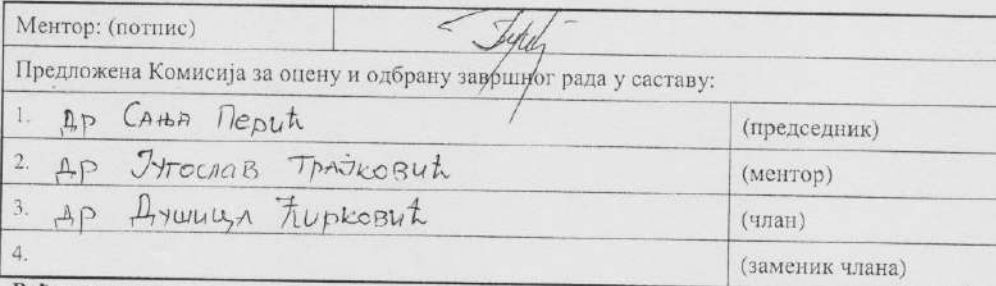 Ментор: (потпис)
Предложена Комисија за оцену и одбрану завршног рада у саставу:
1. др Сања Перић (председник)
2. др Југослав Трајковић (ментор)
3. др Душица Ћирковић (члан)
4. (заменик члана)